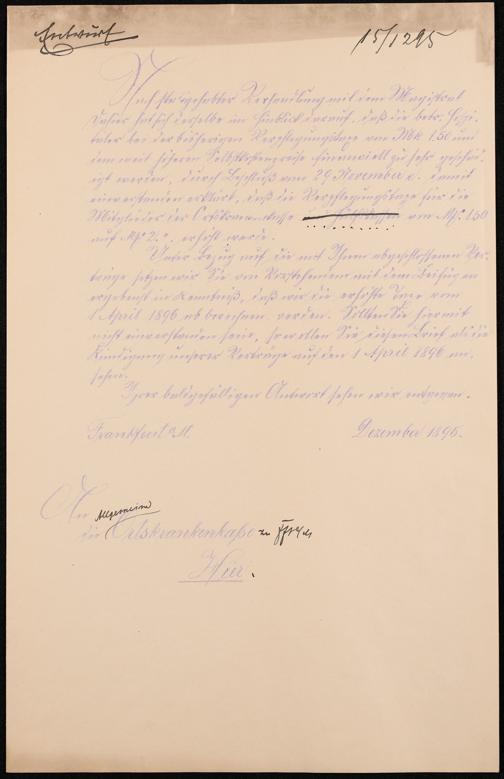 Entwurf
15/12 95
Nach stattgehabter Verhandlung mit dem Magistrat
daher hat sich derselbe im Hinblick darauf, daß die betr. Hospi-
täler bei der bisherigen Verpflegungstaxe von Mk 1.50 und
dem weit höheren Selbstkostenpreise finanziell zu sehr geschä-
digt werden, durch Beschluß vom 29. November c. damit
einverstanden erklärt, daß die Verpflegungstaxe für die
Mitglieder der Ortskrankenkasse von Mk. 1.50
auf Mk 2. erhöht werde.
Unter Bezug auf die mit Ihnen abgeschlossenen Ver-
träge setzen wir Sie von Vorstehendem mit dem Beifügen
ergebenst in Kenntniß, daß wir die erhöhte Taxe vom
1 April 1896 ab berechnen werden. Sollten Sie hiermit
nicht einverstanden sein, so wollen Sie diesen Brief als die
Kündigung unserer Verträge auf den 1 April 1896 an-
sehen.
Ihrer baldgefälligen Antwort sehen wir entgegen.
Frankfurt a/M. Dezember 1895.
An
die Allgemeine Ortskrankenkaße
Hier.